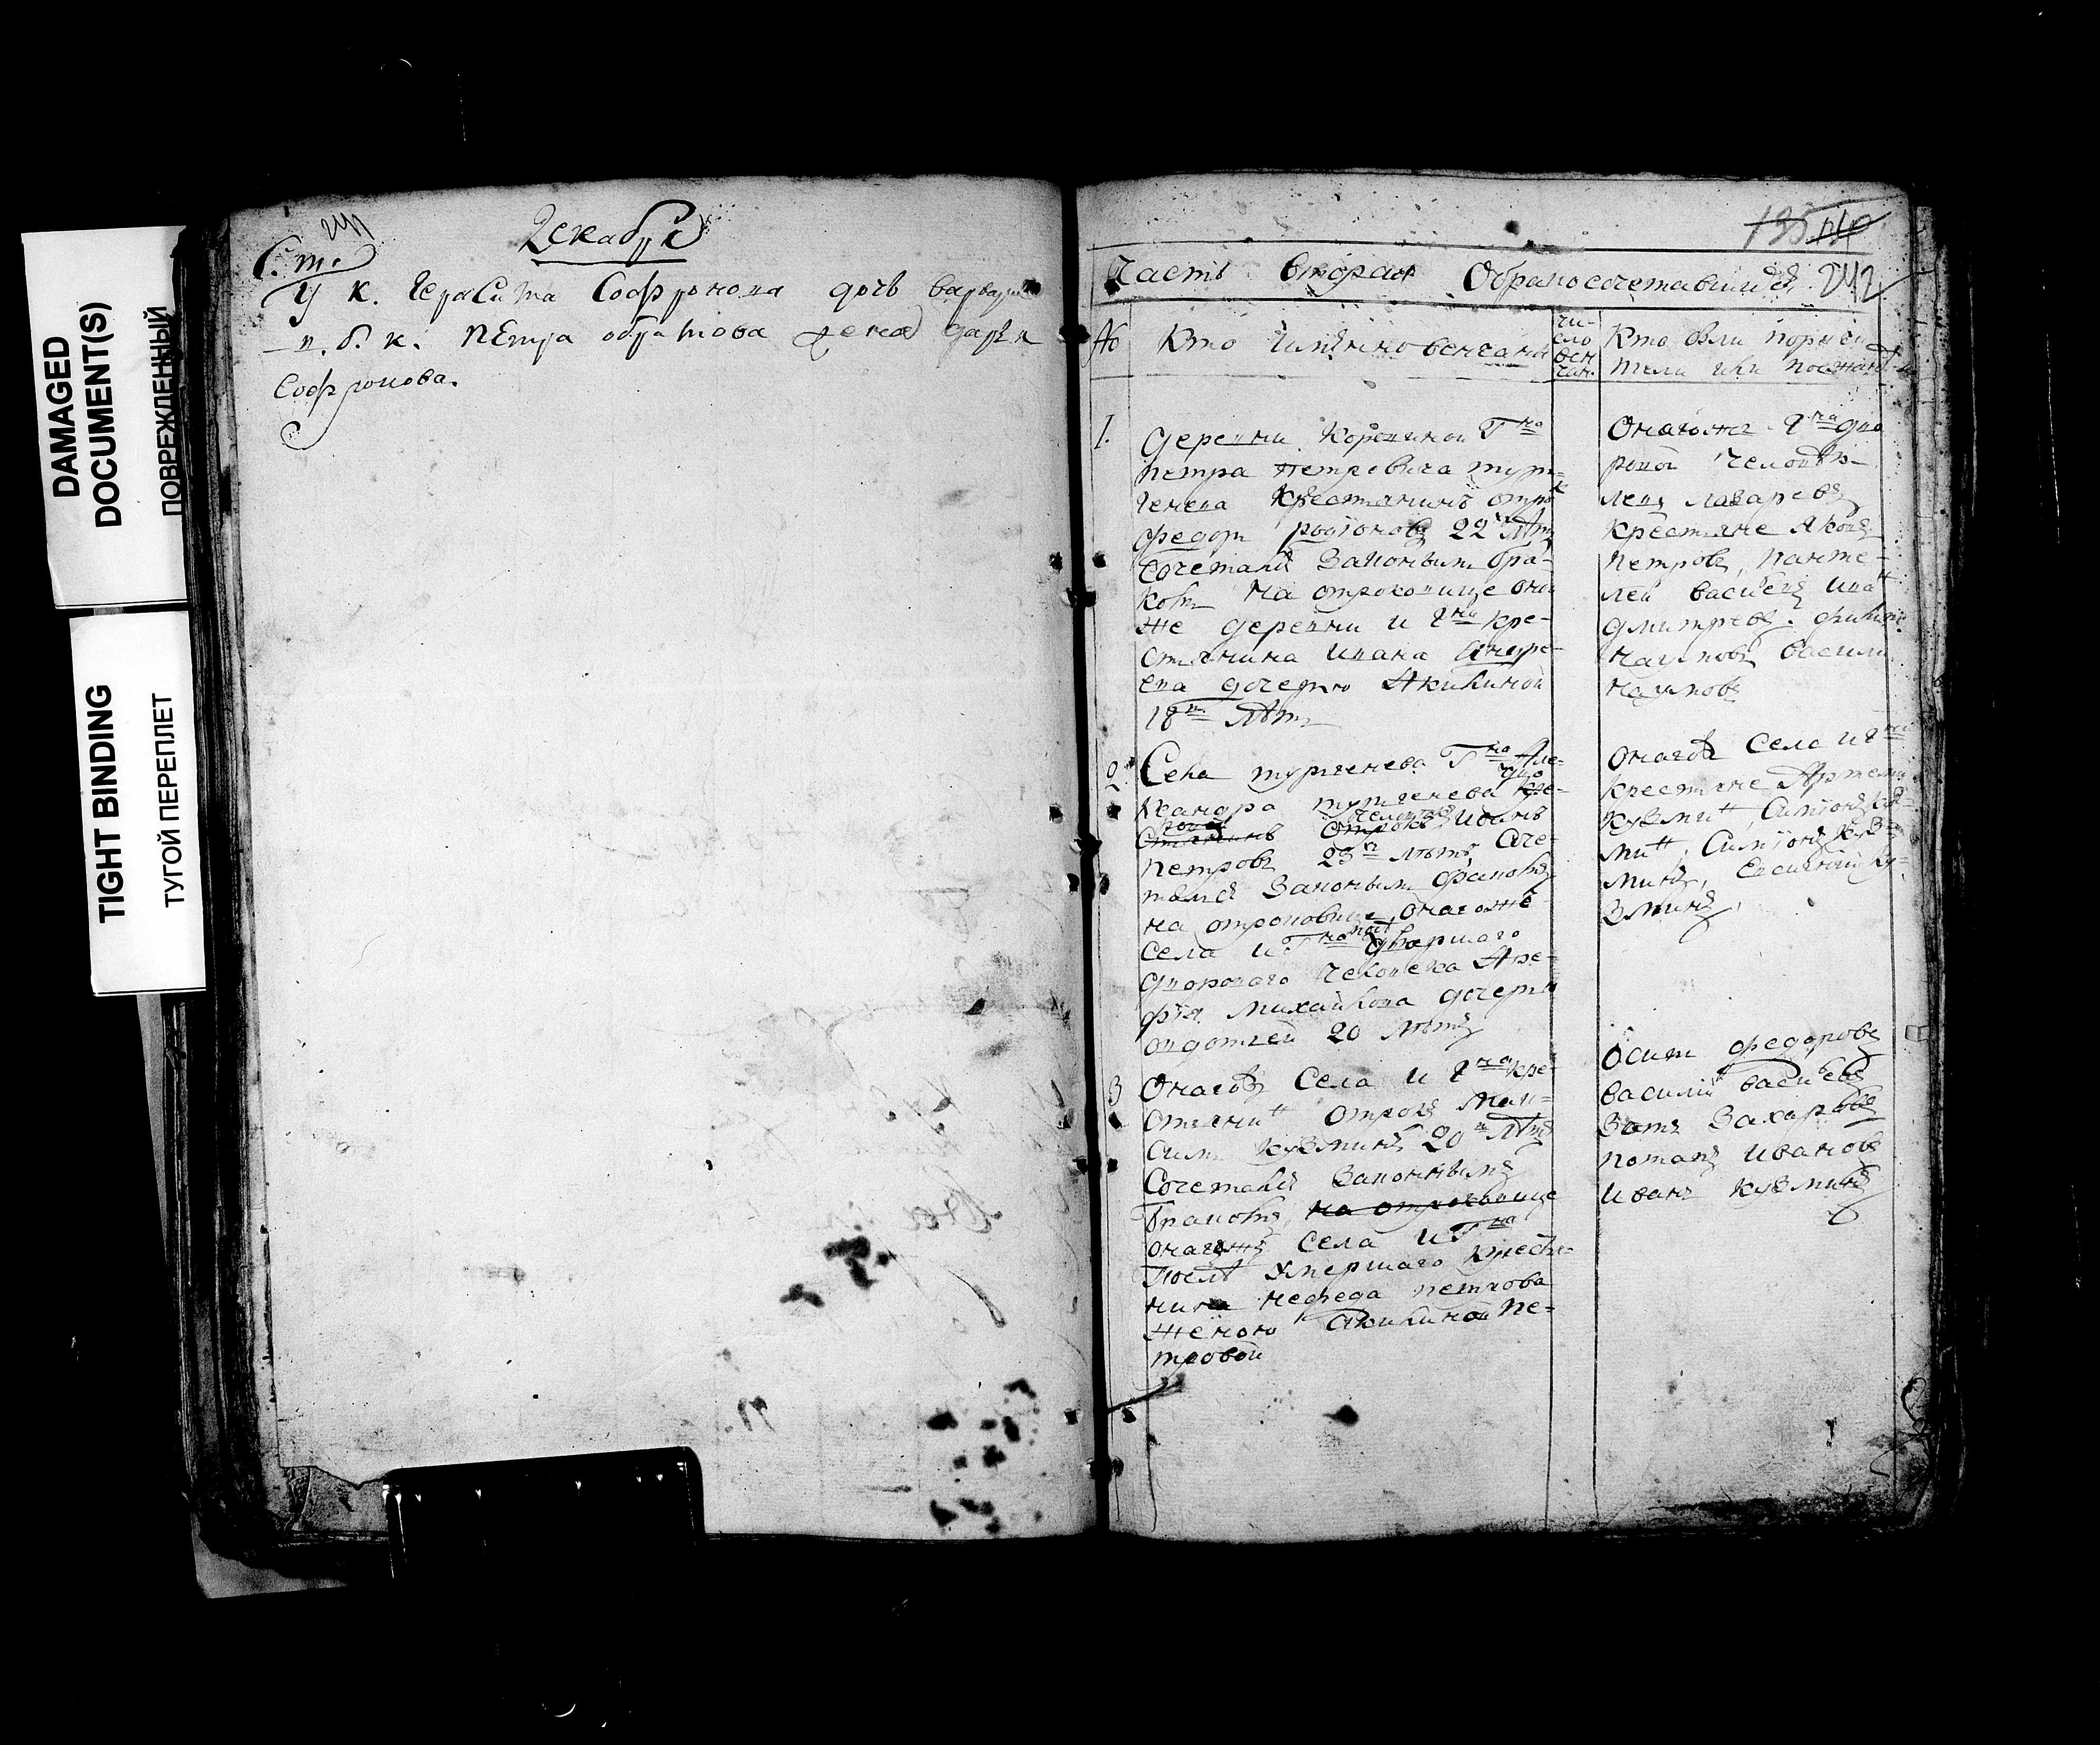 DAMAGED
DOCUMENT(S)
ПОВРЕЖДЕННЫЙ
TIGHT BINDING
ТУГОЙ ПЕРЕПЛЕТ
241
Декабрь
С. т.
У к. Герасима Софронова дочь варвара
п. б. к. Петра жена дарья
Софронова.
135
Часть вторая Обракосочетавшихся 242
№ Кто имянно венчаны
чи-
сло
вен
чан.
Кто были поручи
тели или поезжан
1.
деревни Г на
петра петровича тург-
генева крестянинъ отрокъ
федоръ родионовъ 22 лѣтъ
сочетался законнымъ бра-
комъ на отроковице оной
же деревни и Г на кре-
стянина ивана Андре-
ева дочерью Акилиной
18 лѣтъ
Оногоже Г на дво
ровой человѣкъ
лазаревъ
крестяне Яковъ
петровъ, панте-
лей васильевъ иванъ
дмитревъ. филипъ
наумовъ василий
наумовъ
2.
Села тургенева Г на Але-
ксандра тургенева дво кре-
ровой стянинъ человѣкъ отрокъ иванъ
петровъ 23 лѣтъ соче-
тался законнымъ бракомъ
на отроковице оногоже
села и Г на умершаго
двороваго человека Аре-
фия михайлова дочерью
авдотьей 20 лѣтъ
оногожъ села и Г на
крестяне Артемий
кузминъ, Симионъ куз-
минъ, Симионъ куз-
минъ, Евсигний ку-
зминъ,
3
Оногожъ села и Г на кре-
стянинъ отрокъ Мак-
симъ кузминъ 20 лѣтъ
сочетался законнымъ
бракомъ, на отроковице
оногожъ села и Г на
послѣ умершаго крестя-
нина нефеда петрова
женою Акилиной Пе-
тровой
Осипъ федоровъ
василий васильевъ
захаровъ
потапъ ивановъ
иванъ кузминъ